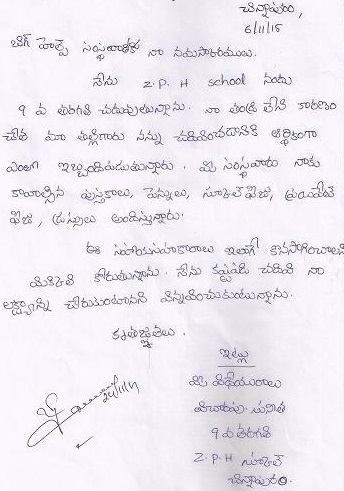 చిన్నాపురం,
6/11/15
బిగ్ హెల్ప్ సంస్థవారికి నా నమస్కారములు.
నేను Z.P.H school నందు
9 వ తరగతి చదువుతున్నాను. నా తండ్రి లేని కారణం
చేత మా తల్లిగారు నన్ను చదివించడానికి ఆర్థికంగా
ఎంతగా ఇబ్బందిపడుతున్నారు. మీ సంస్థవారు నాకు
కావాల్సిన పుస్తకాలు, పెన్నులు, స్కూల్ ఫీజు, ప్రయివేట్
ఫీజు, డ్రస్సులు అందిస్తున్నారు.
ఈ సహాయసహకారాలు ఇలాగే కొనసాగించాలని
మిమ్మల్ని కోరుతున్నాను. నేను కష్టపడి చదివి నా
లక్ష్యాన్ని చేరుకుంటానని విన్నవించుకుంటున్నాను.
కృతజ్ఞతలు.
ఇట్లు
మీ విధేయురాలు
సునీత
9 వ తరగతి
Z.P.H స్కూల్
చిన్నాపురం.